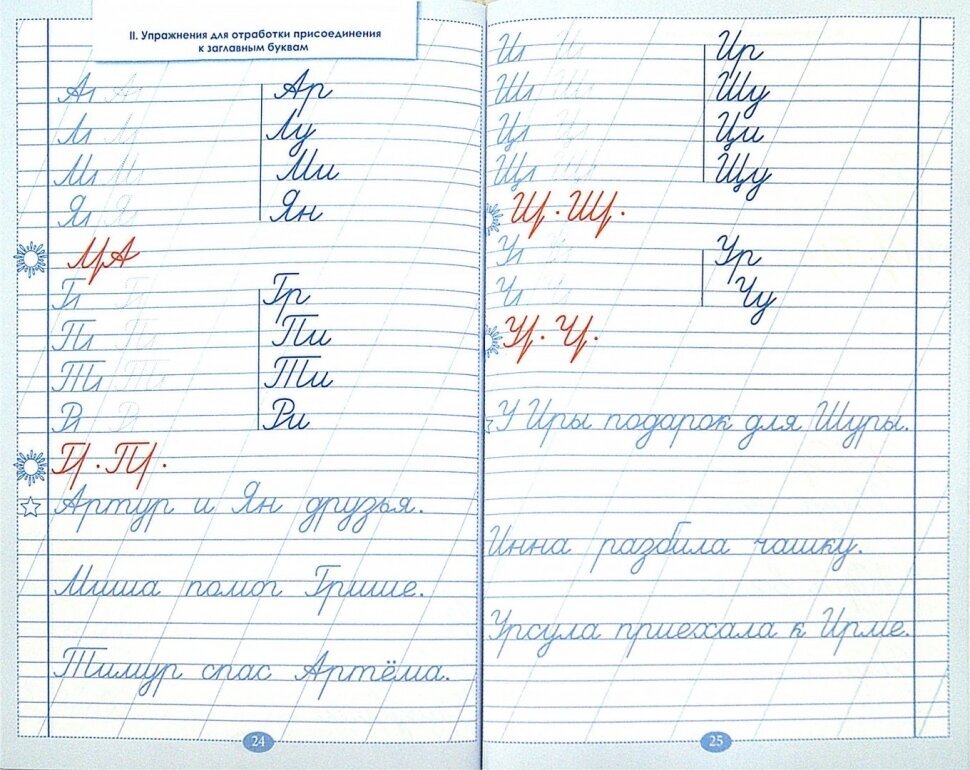 II. Упражнения для отработки присоединения
к заглавным буквам
Ар
Лу
Ми
Ян
Гр
Пи
Ти
Ри
Артур и Ян друзья.
Миша помог Грише.
Тимур спас Артёма.
24
Ир
Шу
Ци
Щу
Ур
Чу
У Иры подарок для Шуры.
Инна разбила чашку.
Урсула приехала к Ирме.
25